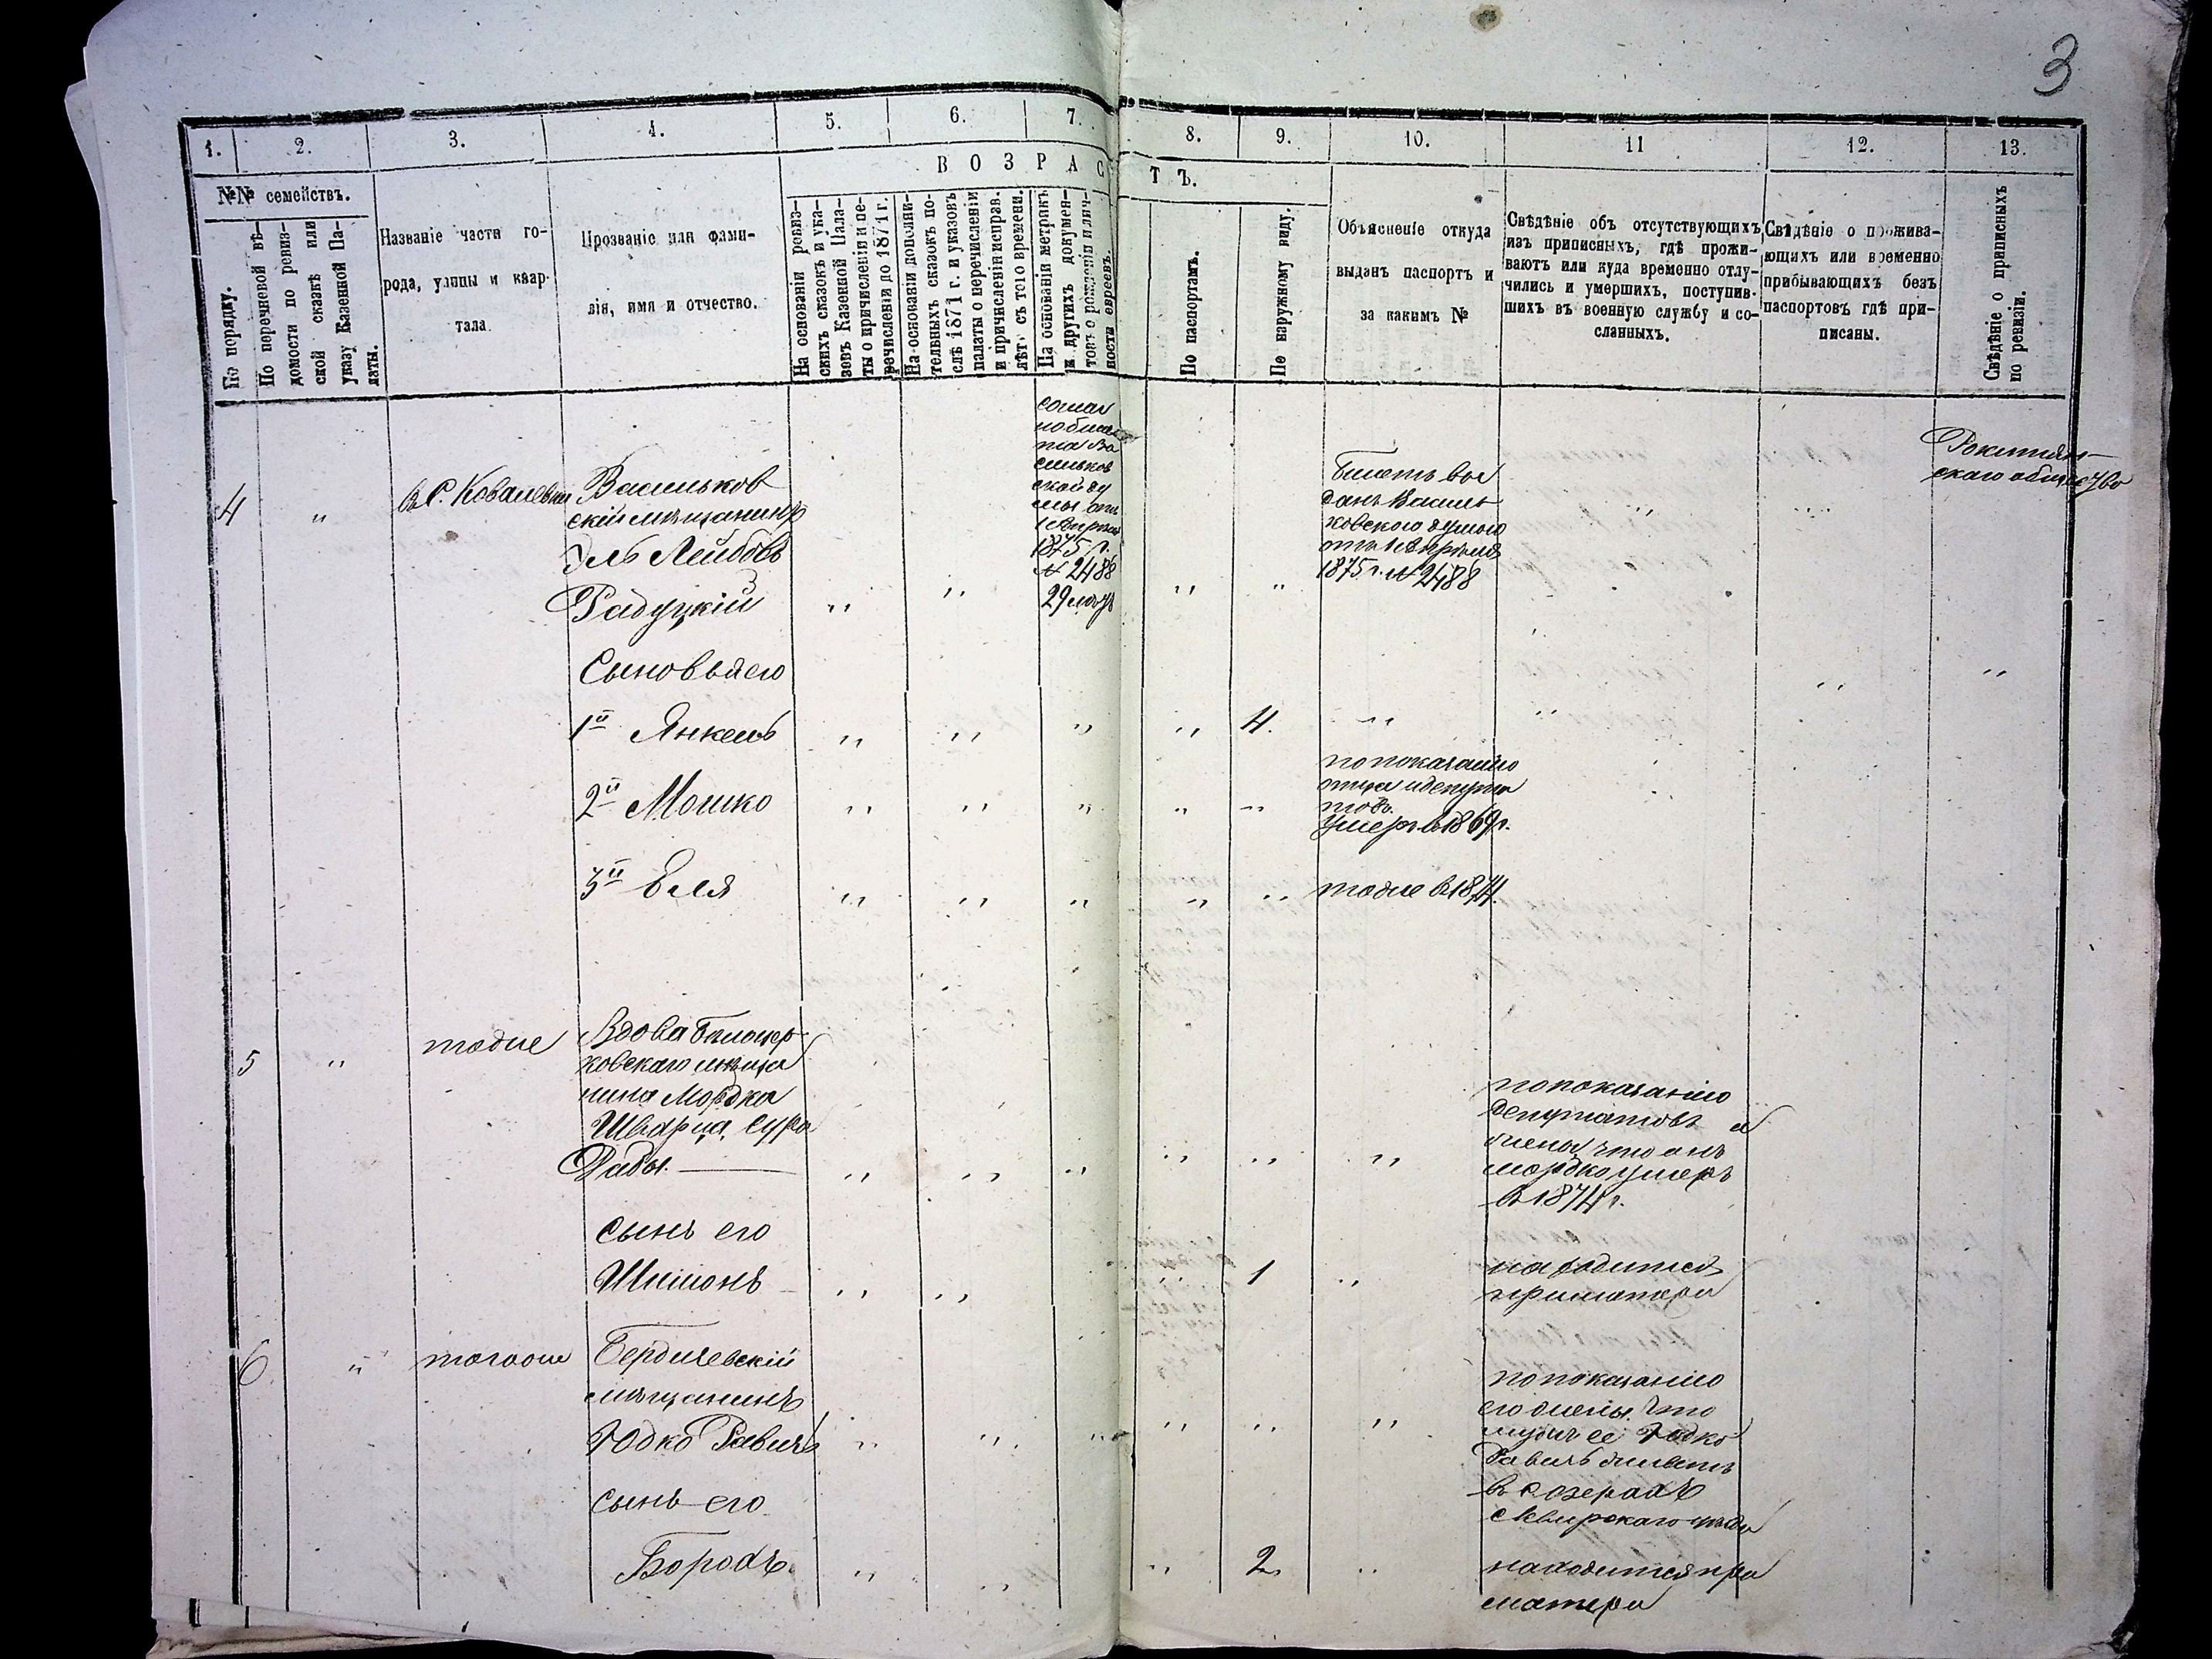 3
1.
2.
3.
4.
5.
6.
7.
8.
9.
10.
11
12.
13.
ВОЗРАСТЪ.
№№ семействъ.
По порядку.
По перечневой вѣ-
домости по ревиз-
ской сказкѣ или
указу Казенной Па-
латы.
Названіе части го-
рода, улицы и квар-
тала
Прозваніе или фами-
лія, имя и отчество.
На основаніи ревиз-
скихъ сказокъ и ука-
зовъ Казенной Пала-
ты о причисленіи и пе-
речисленіи до 1871 г.
На основаніи дополни-
тельныхъ сказокъ по-
слѣ 1871 г. и указовъ
палаты о перечисленіи
и причисленіи исправ.
лѣтъ съ того времени.
На основаніи метрикъ
и другихъ докумен-
товъ о рожденіи и лич-
ности евреевъ.
По паспортамъ.
По наружному виду.
Объясненіе откуда
выданъ паспортъ и
за какимъ №
Свѣдѣніе объ отсутствующихъ
изъ приписныхъ, гдѣ прожи-
ваютъ или куда временно отлу-
чились и умершихъ, поступив-
шихъ въ военную службу и со-
сланныхъ.
Свѣдѣніе о прожива-
ющихъ или временно
прибывающихъ безъ
паспортовъ гдѣ при-
писаны.
Свѣдѣніе о приписныхъ
по ревизіи.
4
"
въ С. Ковалевки
Васильков
скій мѣщанинъ
Эль Лейбовъ
Радуцкій
соглас
но биле
та Ва
сильков
ской ду
мы отъ
1 Апрѣля
1875 г.
№ 2488
29 лѣтъ
Билетъ вы
данъ Василь
ковскою думою
отъ 1 Апрѣля
1875 г. № 2488
Рокитнян-
скаго общества
Сыновья его
1й Янкель
4.
2й Мошко
по показанію
отца и депута
товъ
умеръ в 1869 г.
3й Еля
тоже в 1874.
5
"
тоже
Вдова Билоцер
ковскаго мѣща
нина Мордка
Шварца, Сура
по показанію
депутатовъ и
жены, что онъ
Мордко умеръ
в 1874 г.
сынъ его
Шимонъ
1
находится
при матери
6
"
тогоже
Бердичевскій
мѣщанинъ
Юдко Равичъ
по показанію
его жены. что
мужъ ее Юдко
Равичъ живетъ
в с. Озерахъ
Сквирскаго уѣзда
сынъ его
Борохъ.
2
находится при
матери